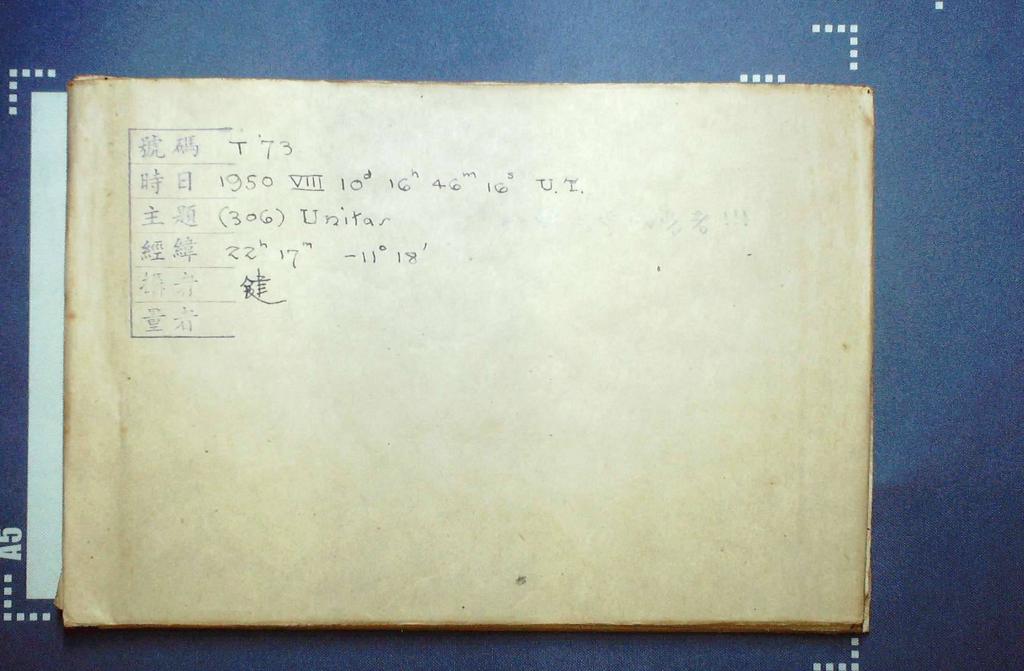 號碼 T 73
時日 1950 VIII 10d 16h 46m 16s U.T.
主題 (306) Unitas
經緯 22h 17m -11° 18'
攝者 健
量者
A5